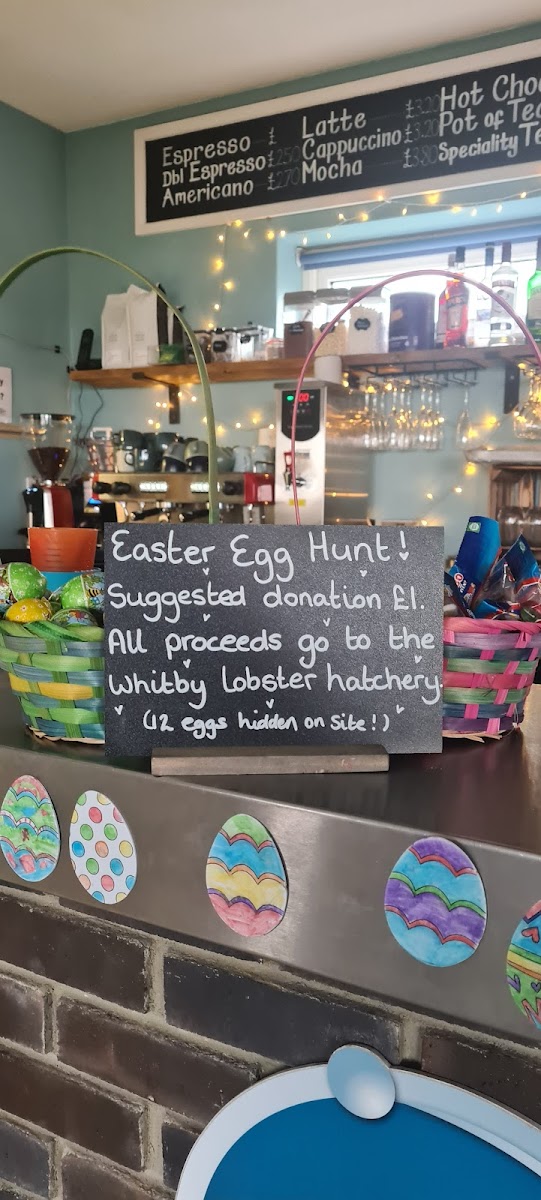 Espresso £
Dbl Espresso £2.50
Americano £2.70
Latte £3.20
Cappuccino £3.20
Mocha £3.80
Hot Choc
Pot of Tea
Speciality Te
Easter Egg Hunt!
Suggested donation £1.
All proceeds go to the
Whitby lobster hatchery.
(12 eggs hidden on site!)